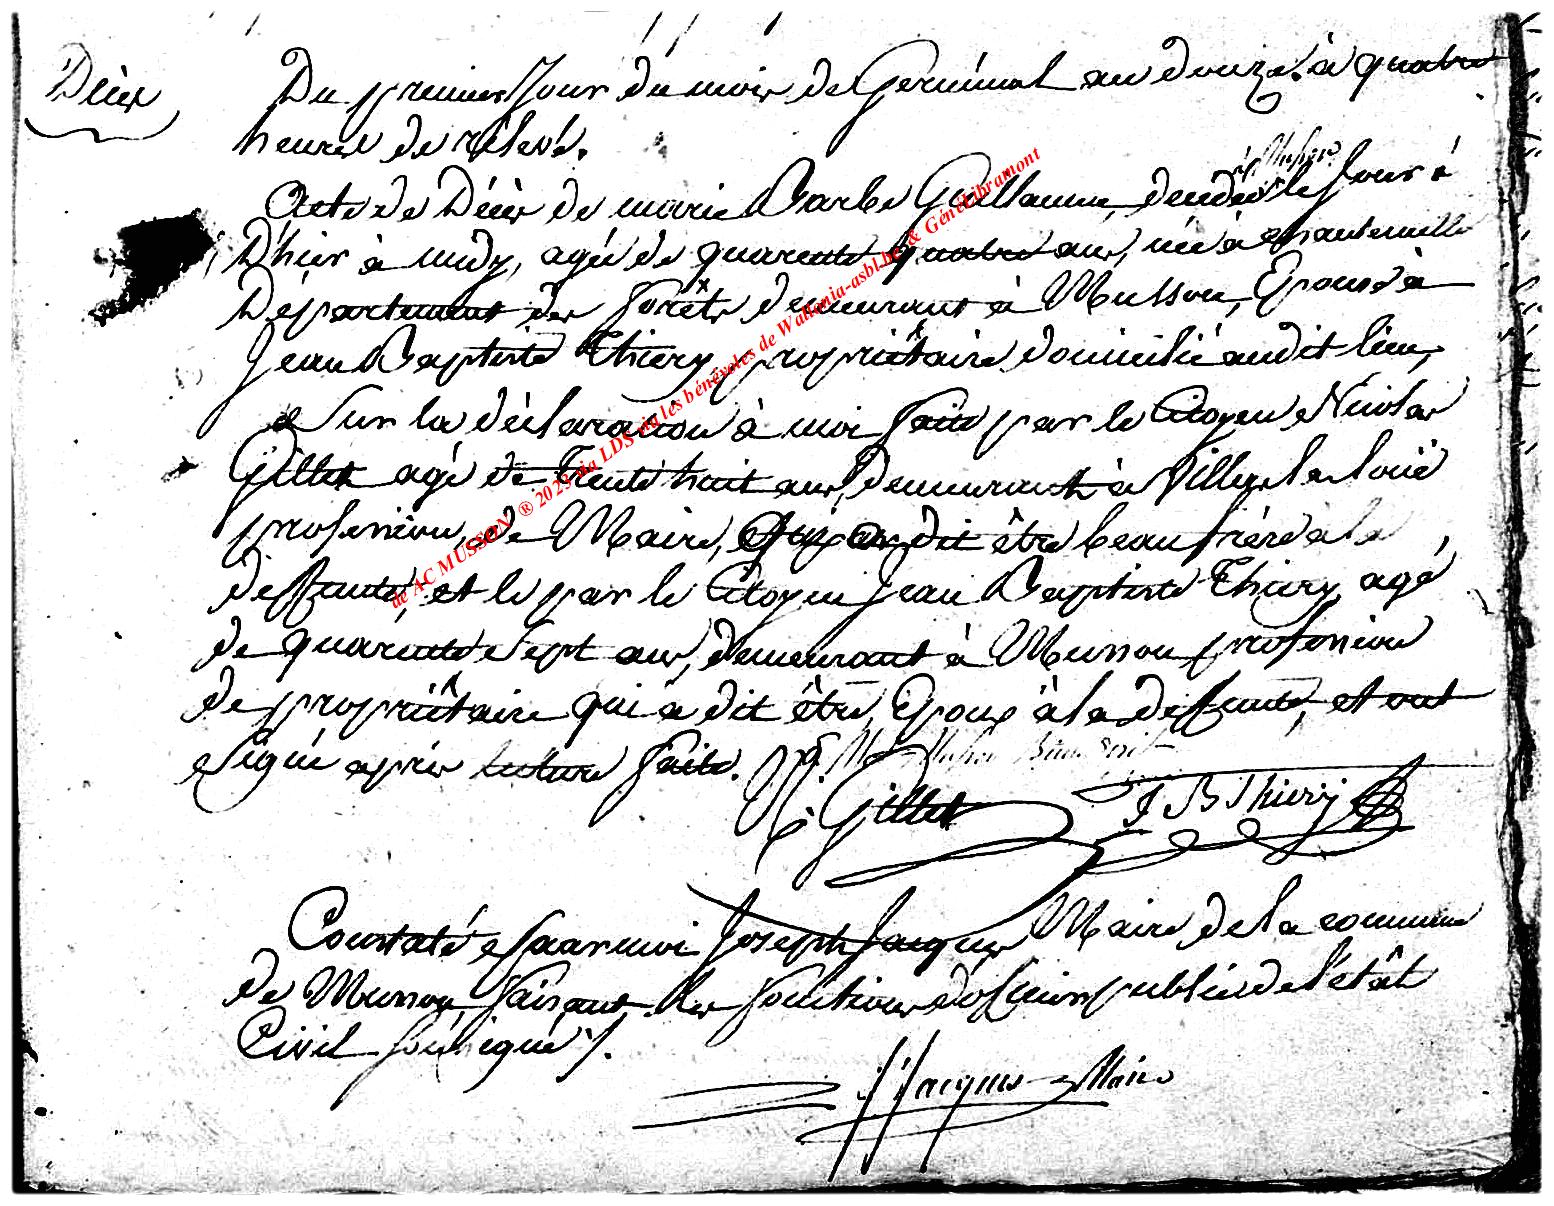 Décès
Du premier Jour du mois de Germinal an douze. à quatre
heures de rélevé.
à Musson
Acte de Décès de marie Barbe Guillaume, décédée le Jour d
D'hier à midy, agée de quarente quatre ans, née à chantemelle
Département des Forêts demeurant à Musson, Epouse à
Jean Baptiste Thiery, propriétaire domicilié audit lieu,
Sur la déclaration à moi faite par le Citoyen Nicolas
Gillet agé de Trente huit ans, Demeurant à Villers la loue
profession, de Maire, qui a dit être beau frère à la
deffunte, et le par le Citoyen Jean Baptiste Thiery agé
de quarente Sept ans, demeurant à Musson profession
de propriétaire qui a dit être Epoux à la deffunte, et ont
Signé après lecture faite.
N: Gillet J B Thiery
Constaté par moi Joseph Jacques Maire de la commune
de Musson, faisant les fonctions d'officier public de l'état
Civil Soussigné.
J Jacques Maire
de AC MUSSON ® 2023 via LDS via les bénévoles de Wallonia-asbl.be & Généalibramont